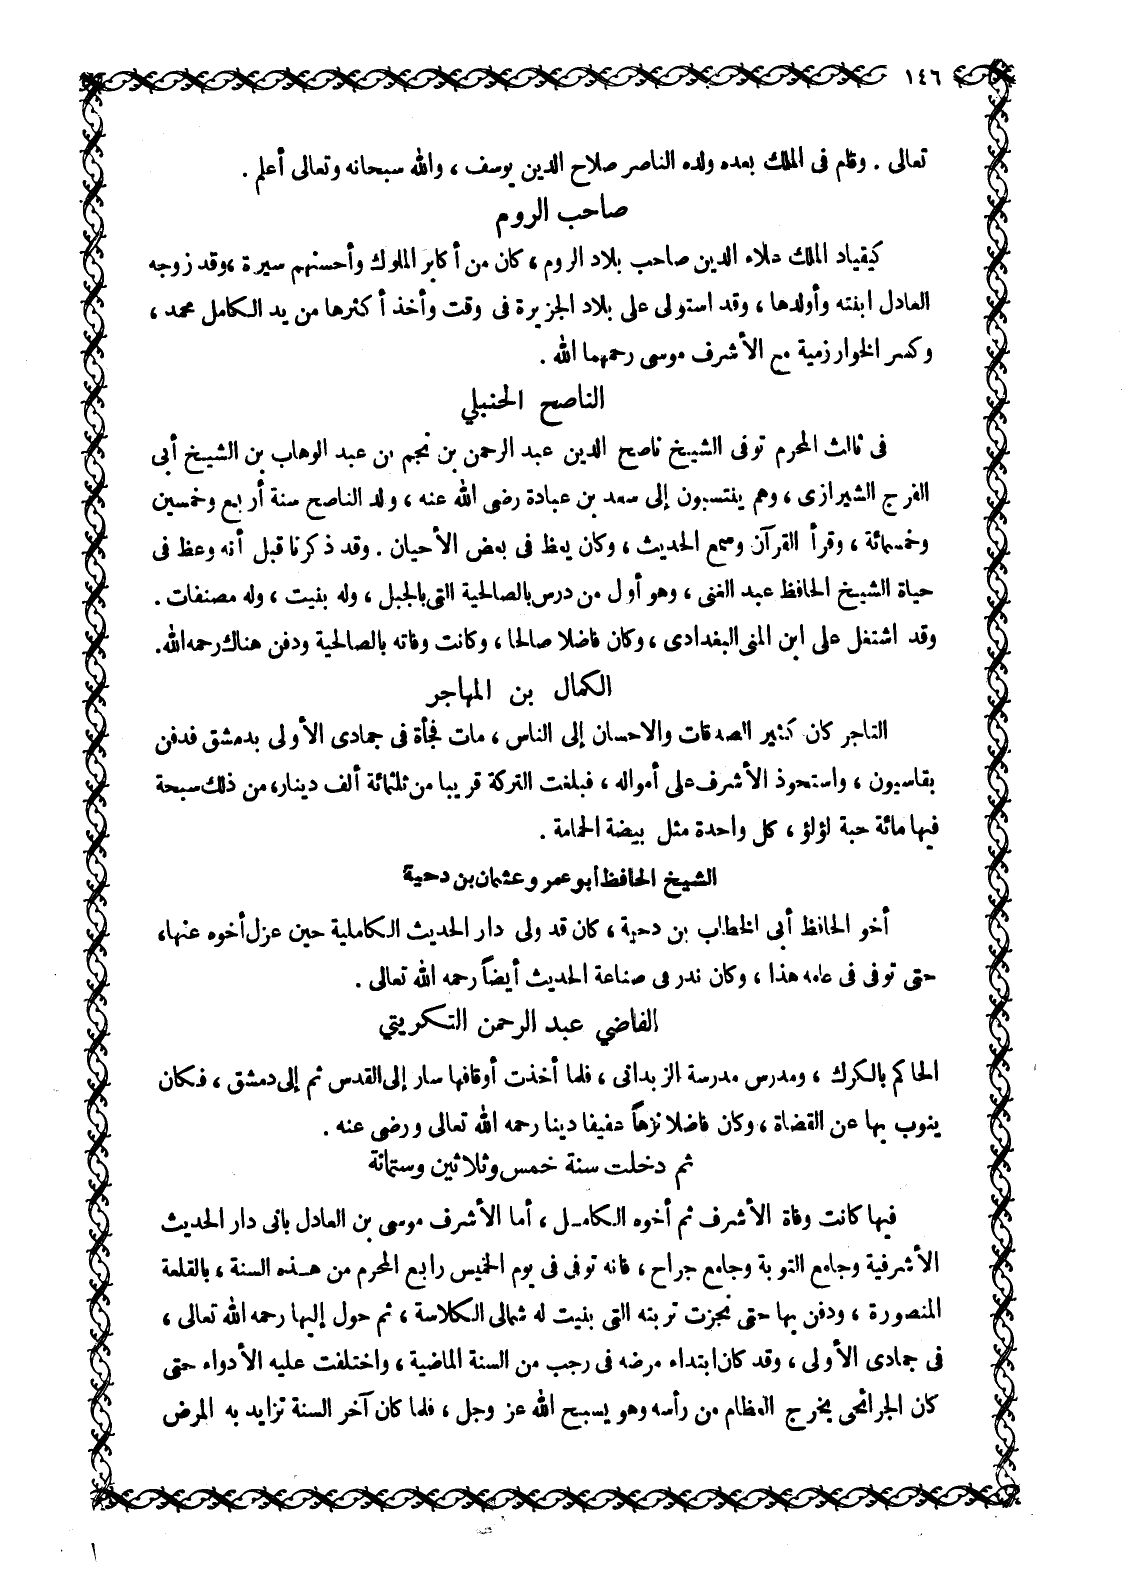 ١٤٦
تعالى . وقام فى الملك بعده ولده الناصر صلاح الدين يوسف ، والله سبحانه وتعالى أعلم .
صاحب الروم
كيقياد الملك علاء الدين صاحب بلاد الروم ، كان من أكابر الملوك وأحسنهم سيرة ، وقد زوجه
العادل ابنته وأولدها ، وقد استولى على بلاد الجزيرة فى وقت وأخذ أكثرها من يد الكامل محمد ،
وكسر الخوارزمية مع الأشرف موسى رحمهما الله .
الناصح الحنبلي
فى ثالث المحرم توفى الشيخ ناصح الدين عبد الرحمن بن نجم بن عبد الوهاب بن الشيخ أبى
الفرج الشيرازى ، وهم ينتسبون إلى سعد بن عبادة رضى الله عنه ، ولد الناصح سنة أربع وخمسين
وخمسمائة ، وقرأ القرآن وسمع الحديث ، وكان يعظ فى بعض الأحيان . وقد ذكرنا قبل أنه وعظ فى
حياة الشيخ الحافظ عبد الغنى ، وهو أول من درس بالصالحية التى بالجبل ، وله بنيت ، وله مصنفات .
وقد اشتغل على ابن المنى البغدادى ، وكان فاضلا صالحا ، وكانت وفاته بالصالحية ودفن هناك رحمه الله.
الكمال بن المهاجر
التاجر كان كثير الصدقات والاحسان إلى الناس ، مات فجأة فى جمادى الأولى بدمشق فدفن
بقاسيون ، واستحوذ الأشرف على أمواله ، فبلغت التركة قريبا من ثلثمائة ألف دينار، من ذلك سبحة
فيها مائة حبة لؤلؤ ، كل واحدة مثل بيضة الحمامة .
الشيخ الحافظ أبو عمرو عثمان بن دحية
أخو الحافظ أبى الخطاب بن دحية ، كان قد ولى دار الحديث الكاملية حين عزل أخوه عنها،
حتى توفى فى عامه هذا ، وكان ندر فى صناعة الحديث أيضاً رحمه الله تعالى .
القاضي عبد الرحمن التكريتي
الحاكم بالكرك ، ومدرس مدرسة الزبدانى ، فلما أخذت أوقافها سار إلى القدس ثم إلى دمشق ، فكان
ينوب بها عن القضاة ، وكان فاضلا نزهاً عفيفا دينا رحمه الله تعالى ورضى عنه .
ثم دخلت سنة خمس وثلاثين وستمائة
فيها كانت وفاة الأشرف ثم أخوه الكامل ، أما الأشرف موسى بن العادل بانى دار الحديث
الأشرفية وجامع التوبة وجامع جراح ، فانه توفى فى يوم الخميس رابع المحرم من هذه السنة ، بالقلعة
المنصورة ، ودفن بها حتى نجزت تربته التى بنيت له شمالى الكلاسة ، ثم حول إليها رحمه الله تعالى ،
فى جمادى الأولى ، وقد كان ابتداء مرضه فى رجب من السنة الماضية ، واختلفت عليه الأدواء حتى
كان الجرائحى يخرج العظام من رأسه وهو يسبح الله عز وجل ، فلما كان آخر السنة تزايد به المرض